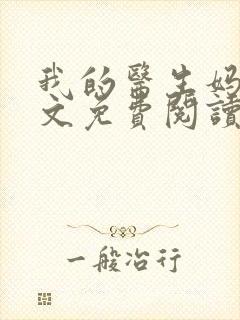 我的醫生媽
文免費閱讀
一般冶行